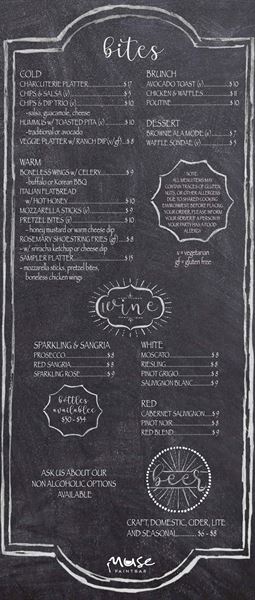 bites
COLD
CHARCUTERIE PLATTER $17
CHIPS & SALSA (v) $5
CHIPS & DIP TRIO (v) $10
-salsa, guacamole, cheese
HUMMUS w/ TOASTED PITA (v) $10
-traditional or avocado
VEGGIE PLATTER w/ RANCH DIP(v/gf) $8
BRUNCH
AVOCADO TOAST (v) $10
CHICKEN & WAFFLES $11
POUTINE $10
DESSERT
BROWNIE ALA MODE (v) $7
WAFFLE SUNDAE (v) $5
WARM
BONELESS WINGS w/ CELERY $9
-buffalo or Korean BBQ
ITALIAN FLATBREAD
w/ HOT HONEY $10
MOZZARELLA STICKS (v) $9
PRETZEL BITES (v) $10
- honey mustard or warm cheese dip
ROSEMARY SHOESTRING FRIES (gf) $8
-w/ sriracha ketchup or cheese dip
SAMPLER PLATTER $15
- mozzarella sticks, pretzel bites,
boneless chicken wings
NOTE:
ALL MENU ITEMS MAY
CONTAIN TRACES OF GLUTEN,
NUTS, OR OTHER ALLERGENS
DUE TO SHARED COOKING
ENVIRONMENT. BEFORE PLACING
YOUR ORDER, PLEASE INFORM
YOUR SERVER IF A PERSON IN
YOUR PARTY HAS A FOOD
ALLERGY
v = vegetarian
gf = gluten free
wine
SPARKLING & SANGRIA
PROSECCO $8
RED SANGRIA $8
SPARKLING ROSE $9
bottles
available
$30 - $34
WHITE
MOSCATO $8
RIESLING $8
PINOT GRIGIO $8
SAUVIGNON BLANC $9
RED
CABERNET SAUVIGNON $9
PINOT NOIR $8
RED BLEND $9
ASK US ABOUT OUR
NON ALCOHOLIC OPTIONS
AVAILABLE
beer
CRAFT, DOMESTIC, CIDER, LITE
AND SEASONAL $6 - $8
Muse
PAINTBAR